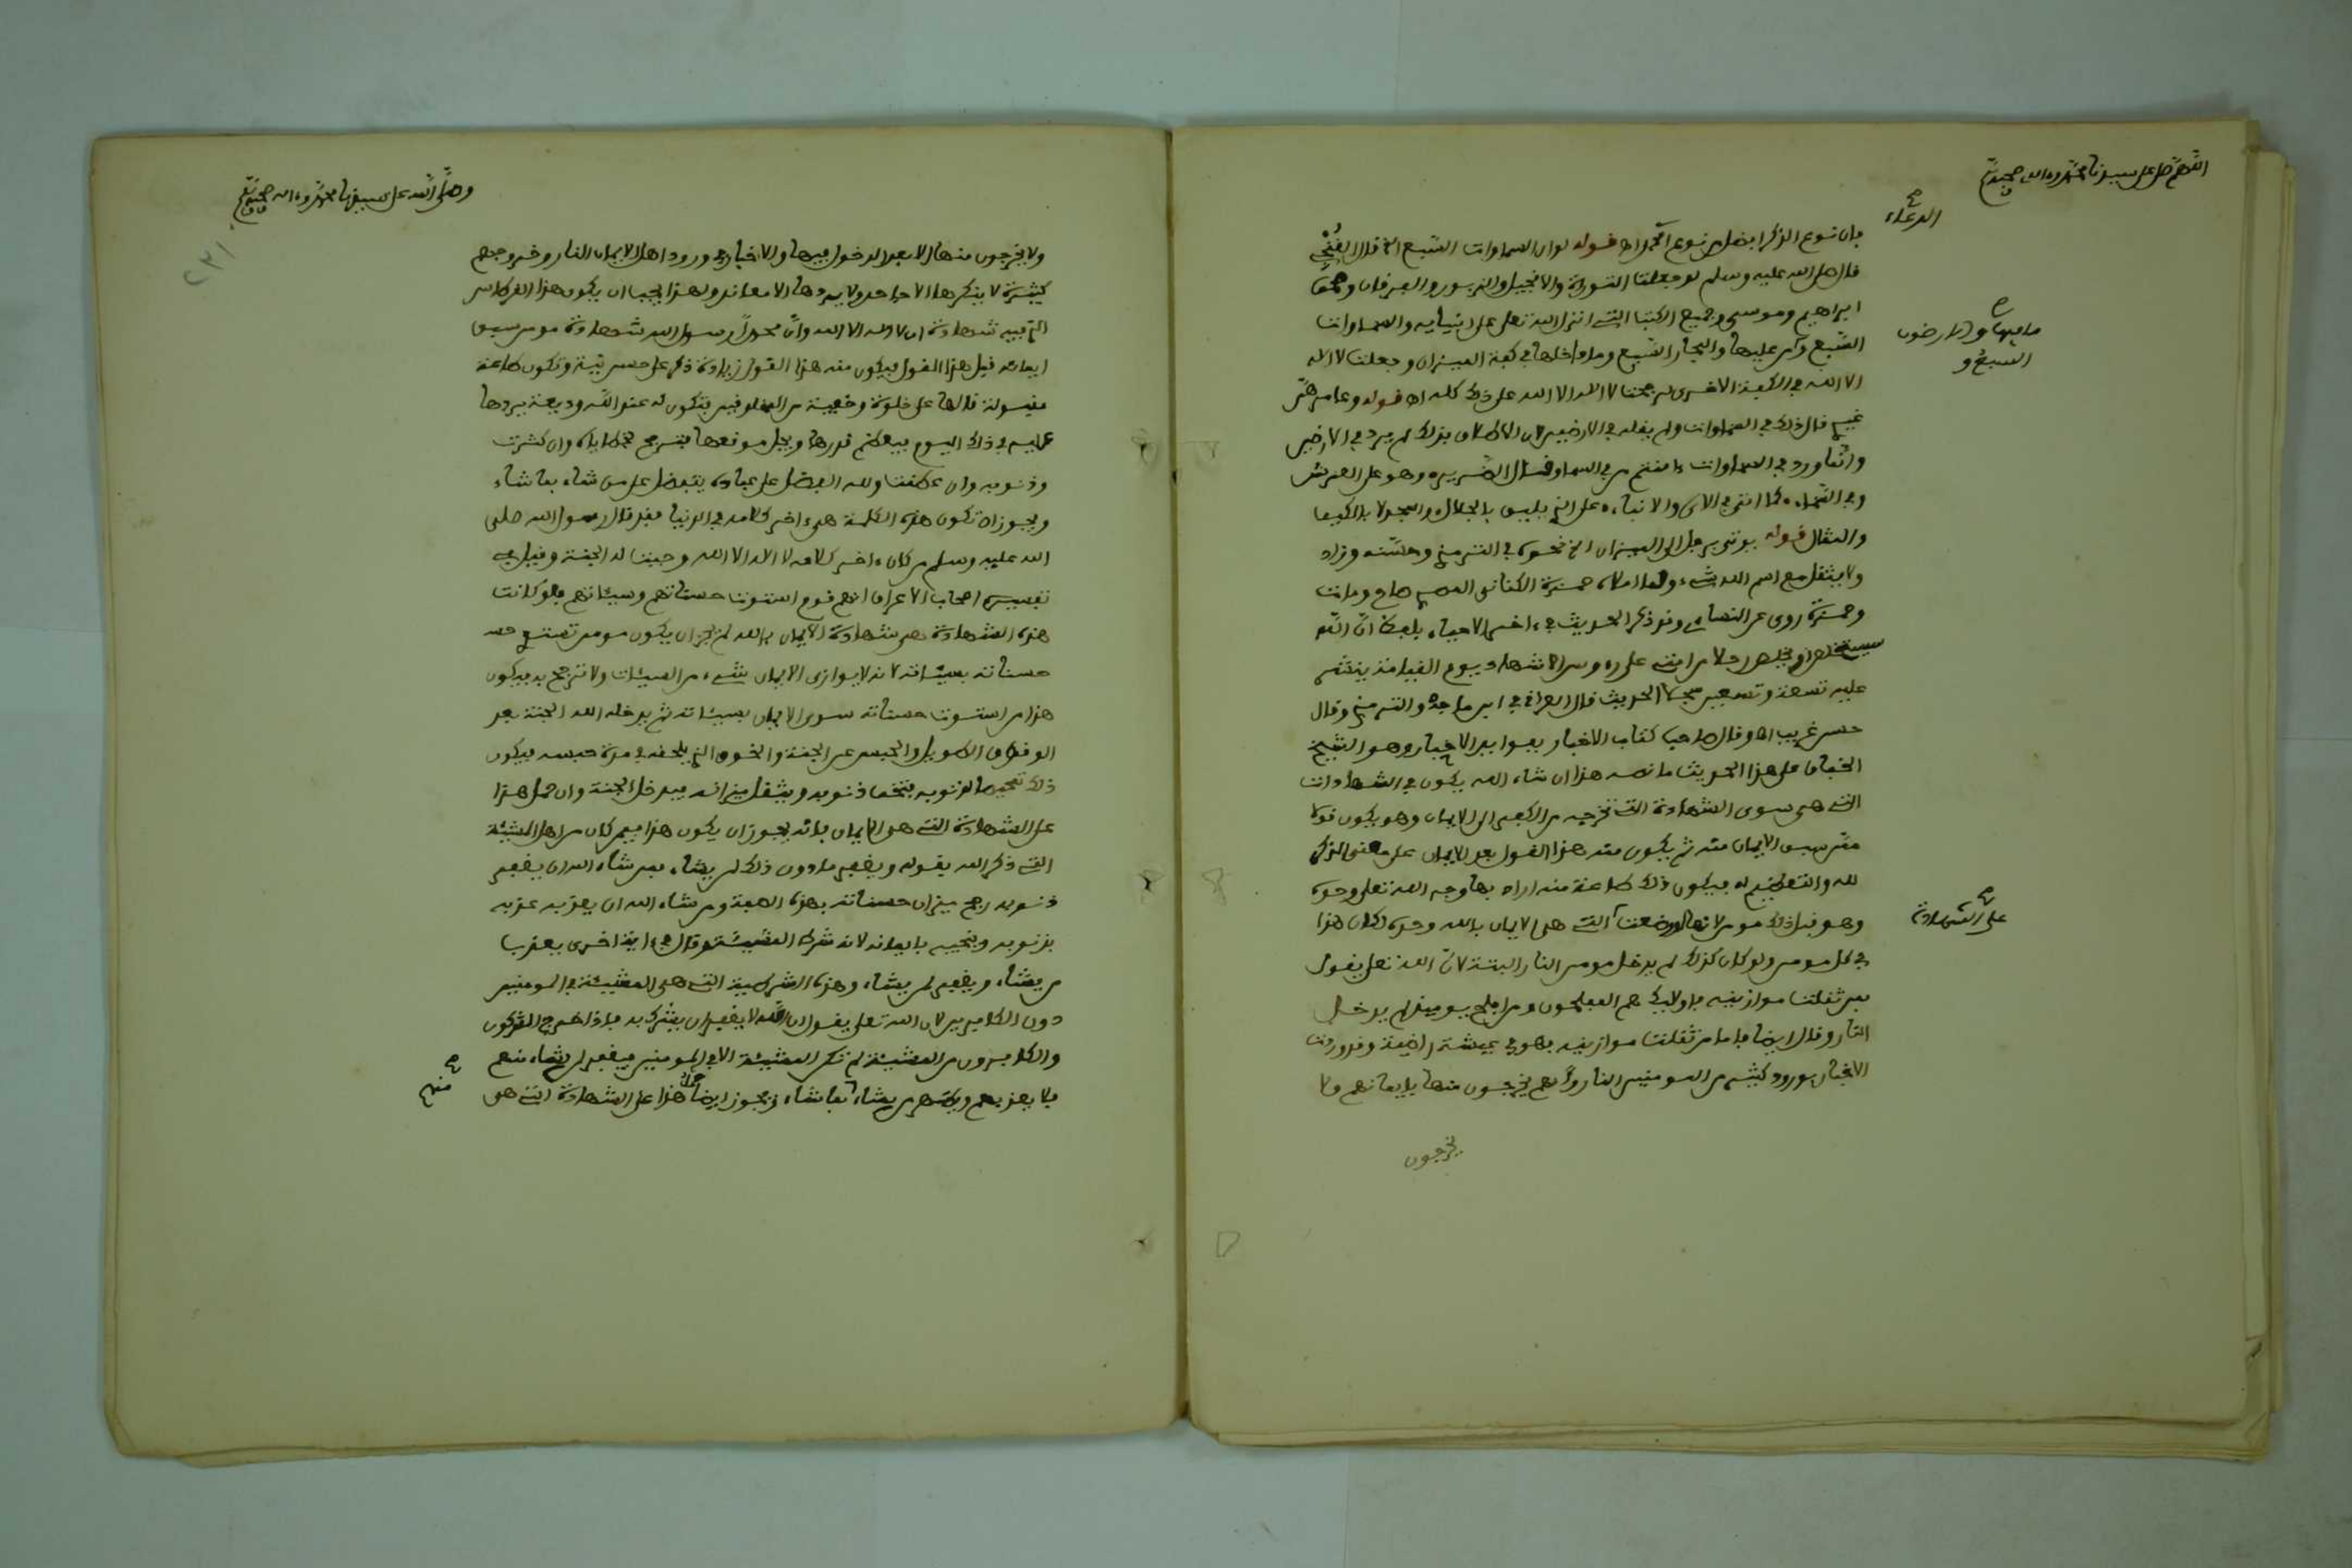 اللهم صل على سيدنا محمد وءاله وصحبه
الدعاء
فان نوع الذكر افضل من نوع اه قوله لو ان السماوات السبع الخ قال
قال صلى الله عليه وسلم لو جعلت التورية والانجيل والزبور والفرقان وصحف
ابراهيم وموسى وجميع الكتب التي انزل الله تعلى على انبيايه والسماوات
ما فيها والارضون
السبع و
السبع ومن عليها والبحار السبع وما داخلها في كفة الميزان وجعلت لا اله
الا الله في الكفة الاخرى لرجحت لا اله الا الله على ذلك كله اه قوله وعامرهن
غيري قال ذلك في السماوات ولم يقله في الارضين لان الاطلاق بذلك لم يرد في الارضين
وانما ورد في السماوات ءامنتم من في السماء وهو على العرش
وفي السماء كما اتى في الاي والانباء على الذي يليق بالجلال والمجد لا بالكيف
والمثال قوله يوتى برجل الى الميزان الخ نحوه في الترمذي وحسنه وزاد
ولا يثقل مع اسم الله شيء ولما املاه حمزة الكناني صاح ومات
وحمزة روى عن النساءي وقد ذكر الحديث في ءاخر الاحياء بلفظ ان الله
سيستخلص رجلا من امتي على رءوس الاشهاد يوم القيامة ينشر
عليه تسعة وتسعين سجلا الحديث قال العراقي ابن ماجه والترمذي وقال
حسن غريب اه وقال صاحب كتاب الاخبار بفوايد الاخبار وهو الشيخ
على هذا الحديث ما نصه هذا ان شاء الله يكون في الشهادات
التي هي سوى الشهادة التي تخرجه من الكفر الى الايمان وهو يكون قولا
ممن سبق الايمان منه ثم يكون منه هذا القول بعد الايمان على معنى الذكر
لله والتعظيم له فيكون ذلك طاعة منه اراد بها وجه الله تعلى وحده
على الشهادة
وهو قبل ذلك مومن لانها لو وضعت التي هي الايمان بالله وحده لكان هذا
في كل مومن ولو كان كذلك لم يدخل مومن النار البتة لان الله تعلى يقول
فمن ثقلت موازينه فاولايك هم المفلحون ومن افلح يوميذ لم يدخل
النار وقال ايضا فاما من ثقلت موازينه فهو في عيشة راضية وقد وردت
الاخبار بورود كثير من المومنين النار وانهم يخرجون منها بايمانهم ولا
يخرجون
وصلى الله على سيدنا محمد وءاله وصحبه
٢٣١
ولا يخرجون منها الا بعد الدخول فيها والاخبار في ورود اهل الايمان النار وخروجهم
كثيرة لا ينكرها الا جاحد ولا يردها الا معاند ولهذا يجب ان يكون هذا القرطاس
الذي فيه شهادة ان لا اله الا الله وان محمدا رسول الله شهادة مومن سبق
ايمانه قبل هذا القول فيكون منه هذا القول زيادة ذكر على حسن نية وتكون طاعة
مقبولة قالها على خلوة وخفية من المخلوقين فتكون له عند الله وديعة يردها
عليه في ذلك اليوم فيعظم قدرها ويجل موقعها فترجح بخطاياه وان كثرت
وذنوبه وان عظمت ولله الفضل على عباده يتفضل على من شاء بما شاء
ويجوز ان تكون هذه الكلمة هي ءاخر كلامه في الدنيا فقد قال رسول الله صلى
الله عليه وسلم من كان ءاخر كلامه لا اله الا الله وجبت له الجنة وقيل في
تفسير اصحاب الاعراف انهم قوم استوت حسناتهم وسيئاتهم فلو كانت
هذه الشهادة هي شهادة الايمان بالله لم يجز ان يكون مومن تستوي
حسناته بسيئاته لانه لا يوازى الايمان شيء من السيئات ولا ترجح به فيكون
هذا من استوت حسناته سوى الايمان بسيئاته ثم يدخله الله الجنة بعد
الوقوف الطويل والحبس عن الجنة والخوف الذي يلحقه في مدة حبسه فيكون
ذلك تمحيصا لذنوبه فتخف ذنوبه ويثقل ميزانه فيدخل الجنة وان حمل هذا
على الشهادة التي هي الايمان فانه يجوز ان يكون هذا فيمن كان من اهل المشيئة
التي ذكر الله بقوله ويغفر ما دون ذلك لمن يشاء فمن شاء الله ان يغفر
ذنوبه رجح ميزان حسناته بهذه الصفة ومن شاء الله ان يعذبه عذبه
بذنوبه وينجيه بايمانه لانه شرط المشيئة وقال في ءاية اخرى يعذب
من يشاء ويغفر لمن يشاء وهذه الشرطية التي هي المشيئة في المومنين
دون الكافرين لان الله تعلى يقول ان الله لا يغفر ان يشرك به فاذا خرج المشركون
والكافرون من المشيئة لم تكن المشيئة الا في المومنين فيغفر لمن يشاء منهم
منهم
فلا يعذبهم ويطهر من يشاء بما شاء ويجوز ايضا حمل هذا على الشهادة التي هي